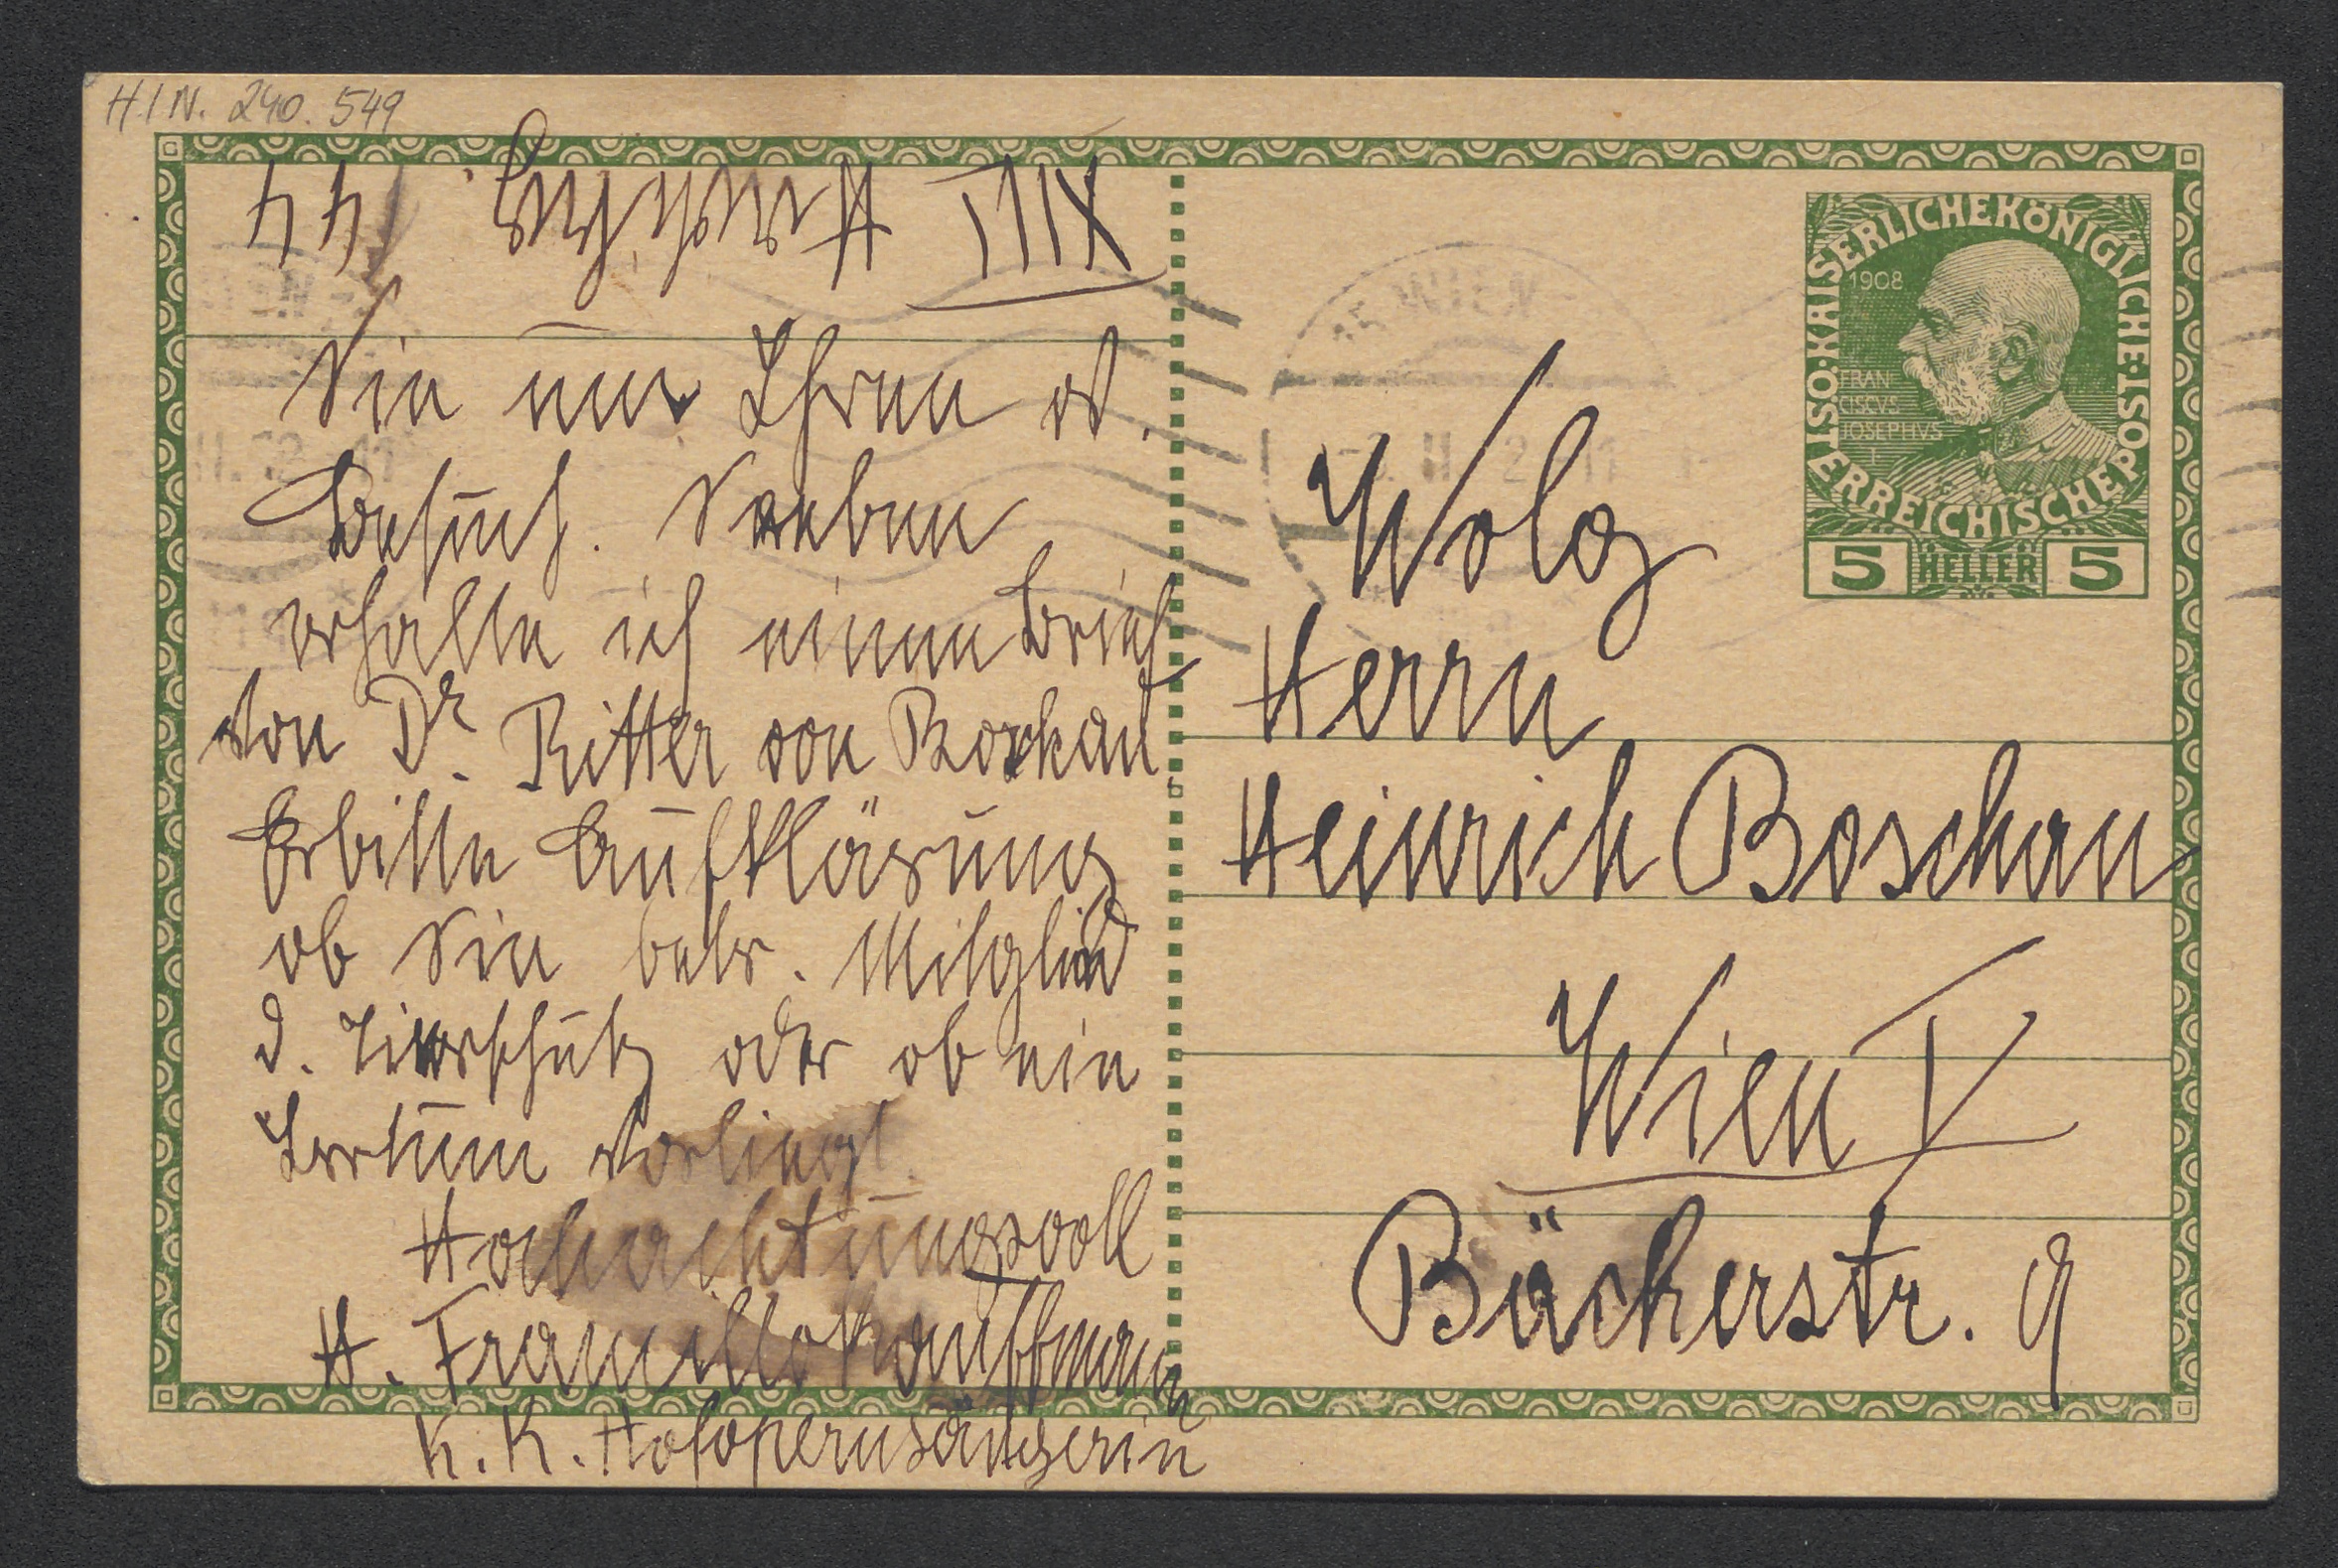 H.I.N. 240.549
XIII
Sie um Ihren w.
Besuch. Soeben
erhalte ich einen Brief
von Dr. Ritter von Boschan
Erbitte Aufklärung
ob Sie betr. Mitglied
d. Tierschutz oder ob ein
Irrtum vorliegt.
Hochachtungsvoll
H. Francillo Kauffmann
K. K. Hofopernsängerin
OSTERREICHISCHE POST
KAISERLICHE KÖNIGLICHE
1908
FRAN
CISCVS
JOSEPHVS
I
5 HELLER 5
WIEN
Wolg
Herrn
Heinrich Boschan
Wien I
Bäckerstr. 9